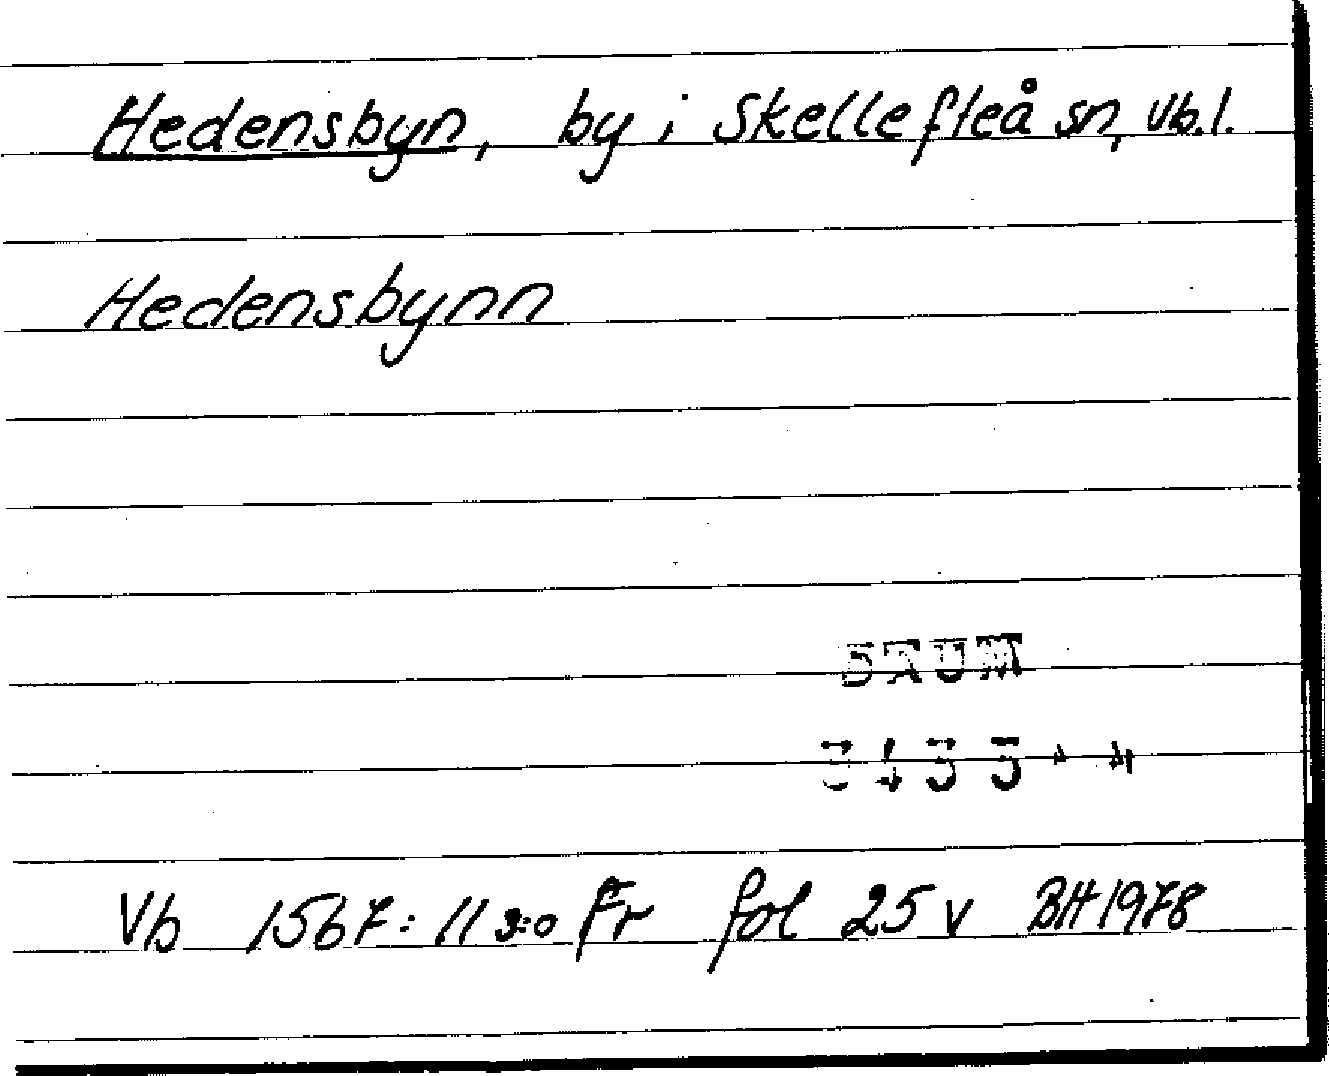 Hedensbyn, by i Skellefteå sn, Vb.l.
Hedensbynn
DAUM
Vb 1567:11 3:o Fr fol 25 v BH 1978